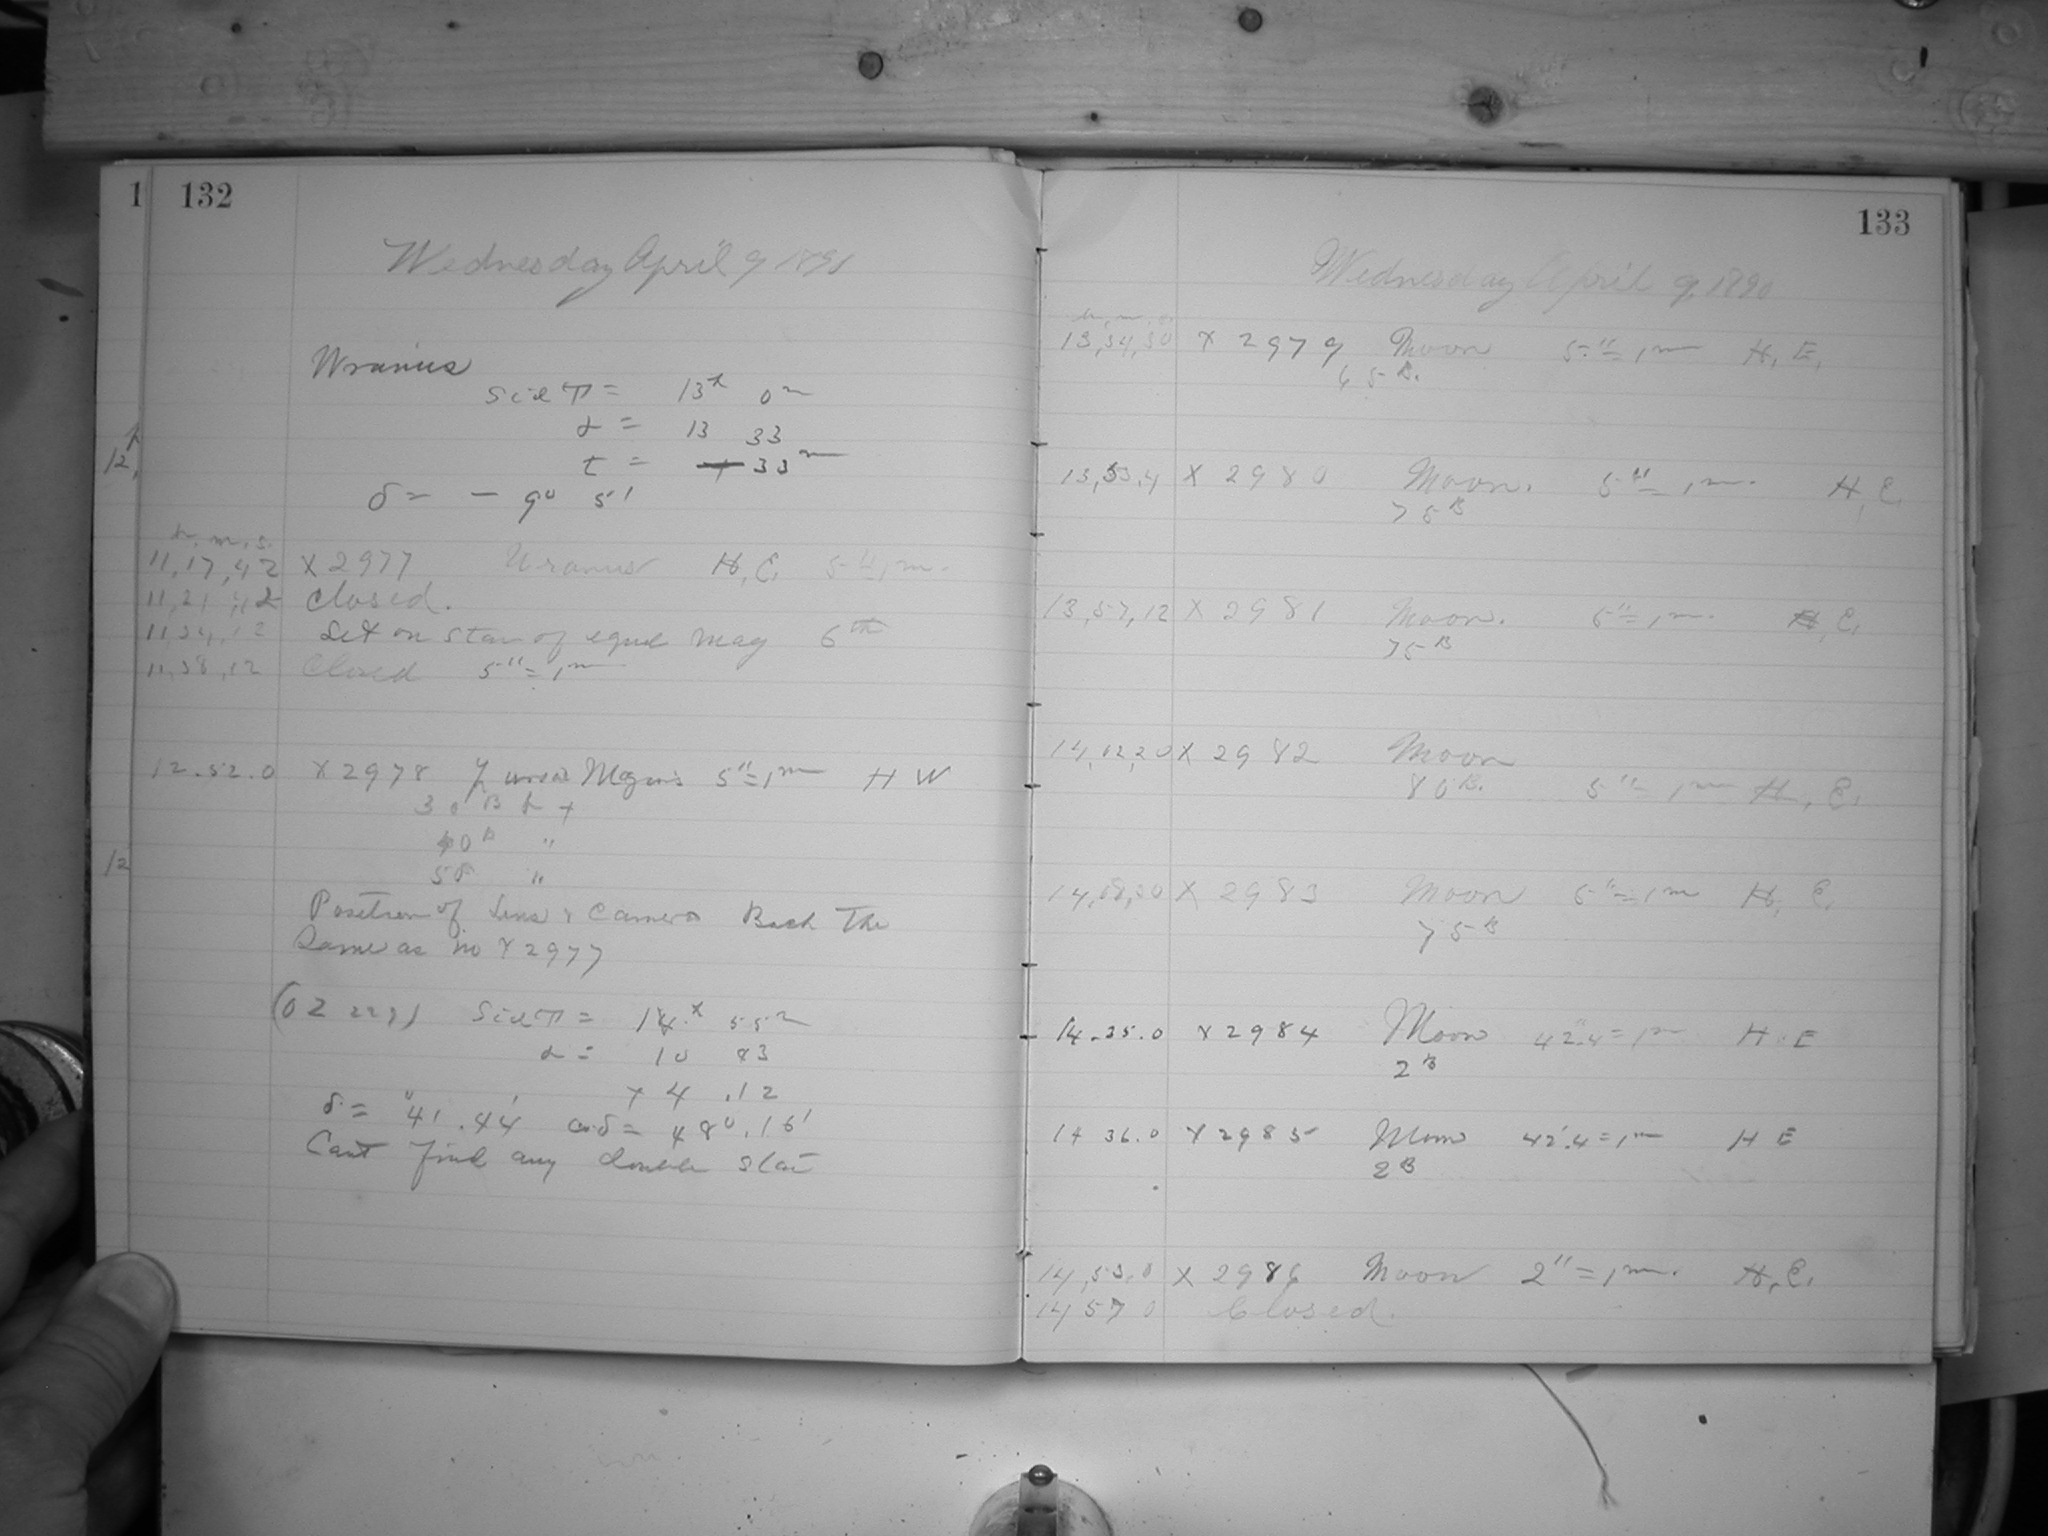 1 132
Wednesday April 9 189
Wranus
Sid T = 13h 0m
α = 13 33
t = + 33m
h
12,
δ = - 9° 51'
h. m. s.
11,17,42 X 2977 Uranus H,E, 5"=1m.
11,21,42 Closed.
11,34,12 Set on star of equal mag 6th
11,38,12 Closed 5"=1m
12.52.0 X 2978 γ Ursæ Majoris 5"=1m H W
30 B
40 B "
50 "
12
Position of Lens & Camera Back The
Same as no X 2977
(OΣ 229) Sid T = 14h 55m
α = 10 43
+ 4 .12
δ = 41°.44' co δ = 48°.16'
Cant find any double star
133
Wednesday April 9, 1890
h. m. s.
13,34,30 X 2979 Moon 5"=1m H, E,
65 B.
13,53,4 X 2980 Moon. 5"=1m. H, E
75 B
13,57,12 X 2981 Moon. 5"=1m. H, E,
75 B
14,12,20 X 2982 Moon
80 B. 5"=1m H, E,
14,18,20 X 2983 Moon 5"=1m H, E,
75 B
14.35.0 X 2984 Moon 42".4=1m H. E
2 B
14 36.0 X 2985 Moon 42".4=1m H E
2 B
14,53,0 X 2986 Moon 2"=1m. H, E,
14 57 0 Closed.